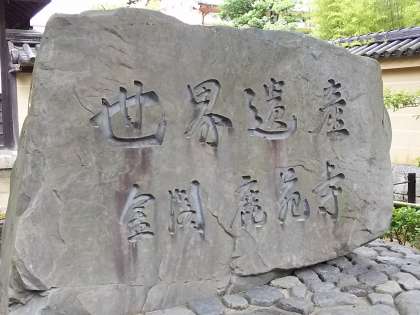 世界遺産
金閣鹿苑寺